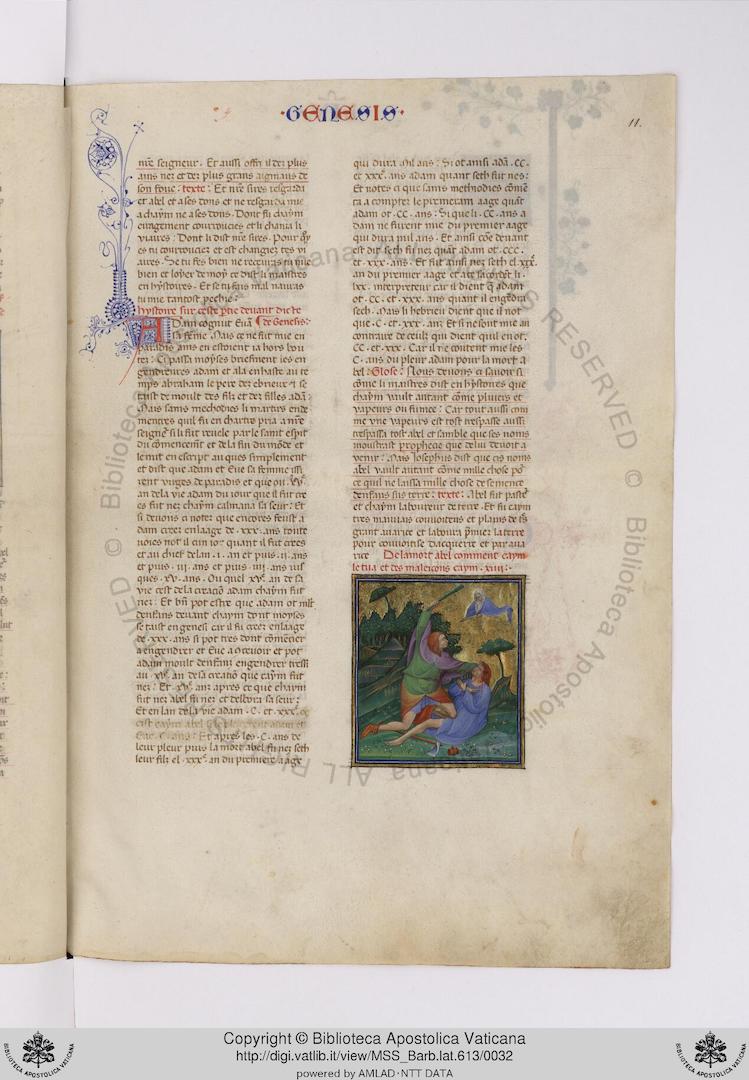 ·GENESIS·
11.
nre seigneur. Et aussi offri il des plus
ains nez et des plus grans aigniaus de
son fouc: texte: Et nre sires resgarda
et abel et a ses dons. et ne resgarda mie
a chaym ne a ses dons. Dont fu chaym
viaires: Dont li dist nre sires. Pour qy
es tu courrouciez et est changiez tes vi
bien et loyer de moy ce dist li maistres
en hystoires. Et se tu fais mal nauras
tu mie tantost pechie:
hystoire sur ceste ptie devant dicte
Adam cognut Eua de Genesis:
sa feme. Mais ce ne fut mie en
paradis ains en estoient ia hors bou
tez: Si passa moyses briefment ces en
gendreures adam et ala en haste au te
mps abraham le pere des ebrieux. et se
taist de moult des filz et des filles ada:
Mais sains methodies li martirs ende
mentres quil fu en chartre pria a nre
seignr si li fut revele par le saint espit
du comencemt et de la fin du monde et
le mist en escript auques simplement
et dist que adam et Eue sa femme issi
rent virges de paradis et que ou .xv.
an de la vie adam du iour que il fut cre
es fut nez chaym calmana sa seur: Et
si devons ci noter que encores feust a
dam creez en laage de .xxx. ans toute
voies not il cun ior quant il fut creez
et au chief de lan .i. an et puis .ii. ans
et puis .iii. ans et puis .iiii. ans ius
ques .xv. ans. Ou quel xve an de sa
vie cest de la creatio adam chaym fut
nez: Et bn pot estre que adam ot mlt
denfans devant chaym dont moyses
se taist en genesi car il fu creez en laage
de .xxx. ans si pot tres dont comencier
a engendrer et Eue a concevoir et pot
adam moult denfanz engendrer tressi
au .xve. an de sa creatio que caym fut
nez: Et .xve. anz apres ce que chaym
fut nez abel fu nez et delbora sa seur:
Et en lan de la vie adam .C. et .xxx.
cist caym abel
Eue .C. ans: Et apres les .C. ans de
leur pleur puis la mort abel fu nez seth
leur filz el .xxxe. an du premiere aage
qui dura mil ans: Si ot ainsi ada .CC.
et .xxx. ans adam quant seth fut nes:
Et notes ci que sains methodies come
ca a compter le premeram aage quat
adam ot .CC. ans: Si que li .CC. ans a
dam ne furent mie du premier aage
qui dura mil ans. Et ainsi come devant
est dit seth fu nez quat adam ot .CCC.
et .xxx. ans. Et fut ainsi nez seth el .xxxe.
an du premier aage et a ce sacordent li
lxx. interpreteur car il dient q adam
ot .CC. et .xxx. ans quant il engedra
seth. Mais li hebrieu dient que il not
que .C. et .xxx. anz. Et si ne sont mie au
contraire de ceulz qui dient quil en ot
CC. et .xxx. Car il ne content mie les
C. ans du pleur adam pour la mort a
bel: Glose: Nous devons ci savoir si
come li maistres dist en hystoires que
chaym vault autant come pluiers et
vapeurs ou fumee: Car tout aussi com
me une vapeurs est tost trespasse aussi
trespassa tost abel et samble que ses noms
moustrast prophecie que celui devoit a
venir: Mais Iosephus dist que cis noms
abel vault autant come mille chose po
ce quil ne laissa mille chose de semence
denfans sus terre: texte: Abel fut paste
et chaym laboureur de terre. Et fu caym
tres mauvais couvoiteus et plains de si
grant avarice et laboura pmiez la terre
pour couvoitise dacquerre et par ava
rice De la mort abel comment caym
le tua et des maleicons caym .xiiii:
Copyright © Biblioteca Apostolica Vaticana
http://digi.vatlib.it/view/MSS_Barb.lat.613/0032
powered by AMLAD·NTT DATA
BIBLIOTECA APOSTOLICA VATICANA
BIBLIOTECA APOSTOLICA VATICANA